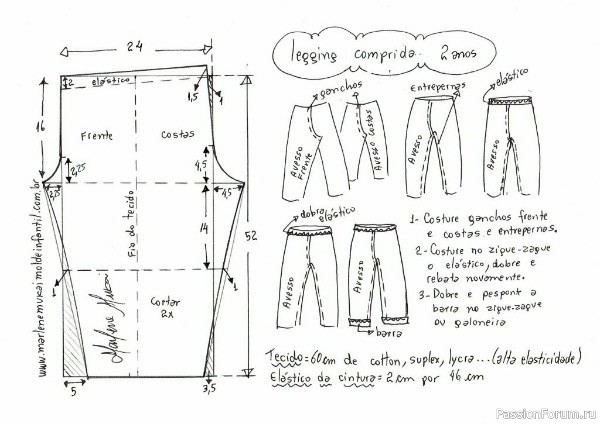 24
legging comprida 2 anos
2
elástico
1,5
1
ganchos
Entrepernas
elástico
16
Frente
Costas
Avesso
Frente
Avesso Costas
Avesso
Avesso
2,25
4,5
2,5
4,5
www.marlenemukaimoldeinfantil.com.br
Fio do tecido
14
52
dobra
elástico
Avesso
Avesso
barra
1- Costure ganchos frente
e costas e entrepernas.
2- Costure no zigue-zague
o elástico, dobre e
rebata novamente.
3- Dobre e pesponte a
barra no zigue-zague
ou galoneira
1
1
Cortar
2x
Marlene Mukai
5
3,5
Tecido=60cm de cotton, suplex, lycra...(alta elasticidade)
Elástico da cintura=2cm por 46cm
PassionForum.ru